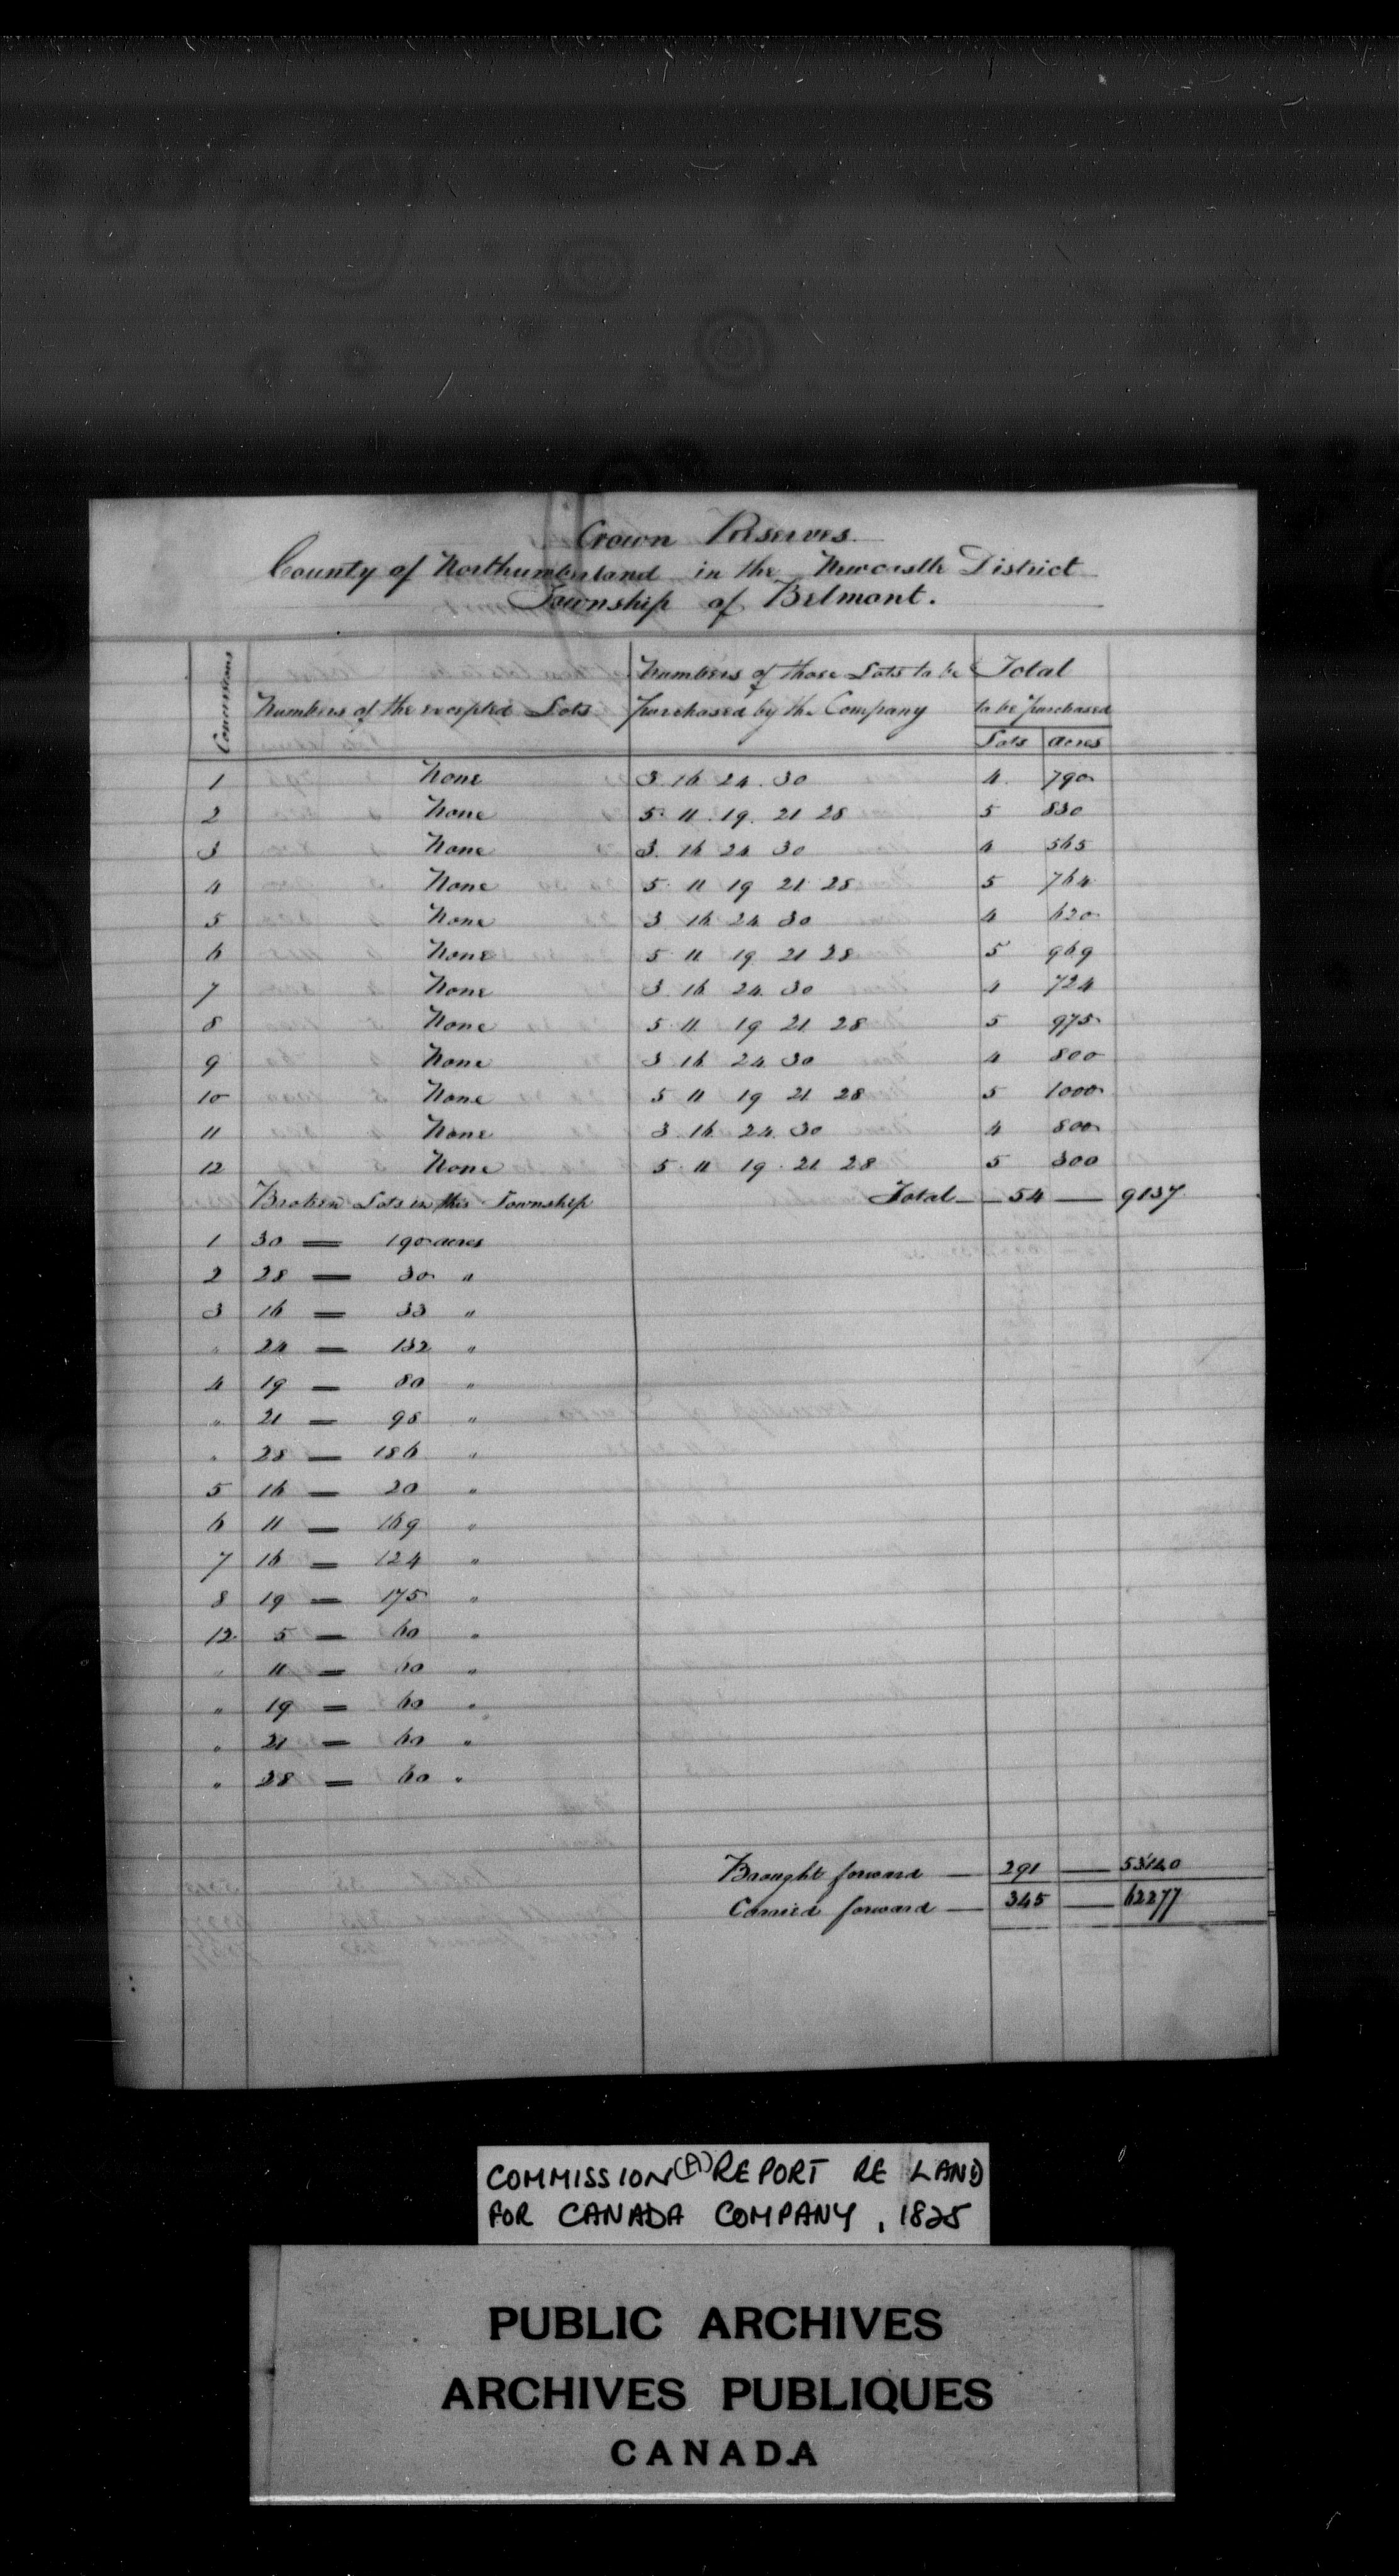 Crown Reserves
County of Northumberland in the Newcastle District
Township of Belmont.
Concessions
Numbers of the excepted Lots
Numbers of those Lots to be purchased by the Company
Total to be purchased
Lots acres
1 None 3. 16 24. 30 4. 790
2 None 5. 11. 19. 21 28 5 830
3 None 3. 16 24 30 4 565
4 None 5. 11 19 21 28 5 764
5 None 3 16 24 30 4 620
6 None 5 11 19 21 28 5 969
7 None 3 16 24. 30 4 724
8 None 5. 11 19 21 28 5 975
9 None 3 16 24 30 4 800
10 None 5 11 19 21 28 5 1000
11 None 3 16 24 30 4 800
12 None 5. 11 19. 21 28 5 300
Broken Lots in this Township Total — 54 — 9137
1 30 — 190 acres
2 28 — 30 "
3 16 — 33 "
" 24 — 132 "
4 19 — 80 "
" 21 — 98 "
" 28 — 186 "
5 16 — 20 "
6 11 — 169 "
7 16 — 124 "
8 19 — 175 "
12 5 — 60 "
" 11 — 60 "
" 19 — 60 "
" 21 — 60 "
" 28 — 60 "
Brought forward — 291 — 53140
Carried forward — 345 — 62277
COMMISSION (A) REPORT RE LAND
FOR CANADA COMPANY, 1825
PUBLIC ARCHIVES
ARCHIVES PUBLIQUES
CANADA